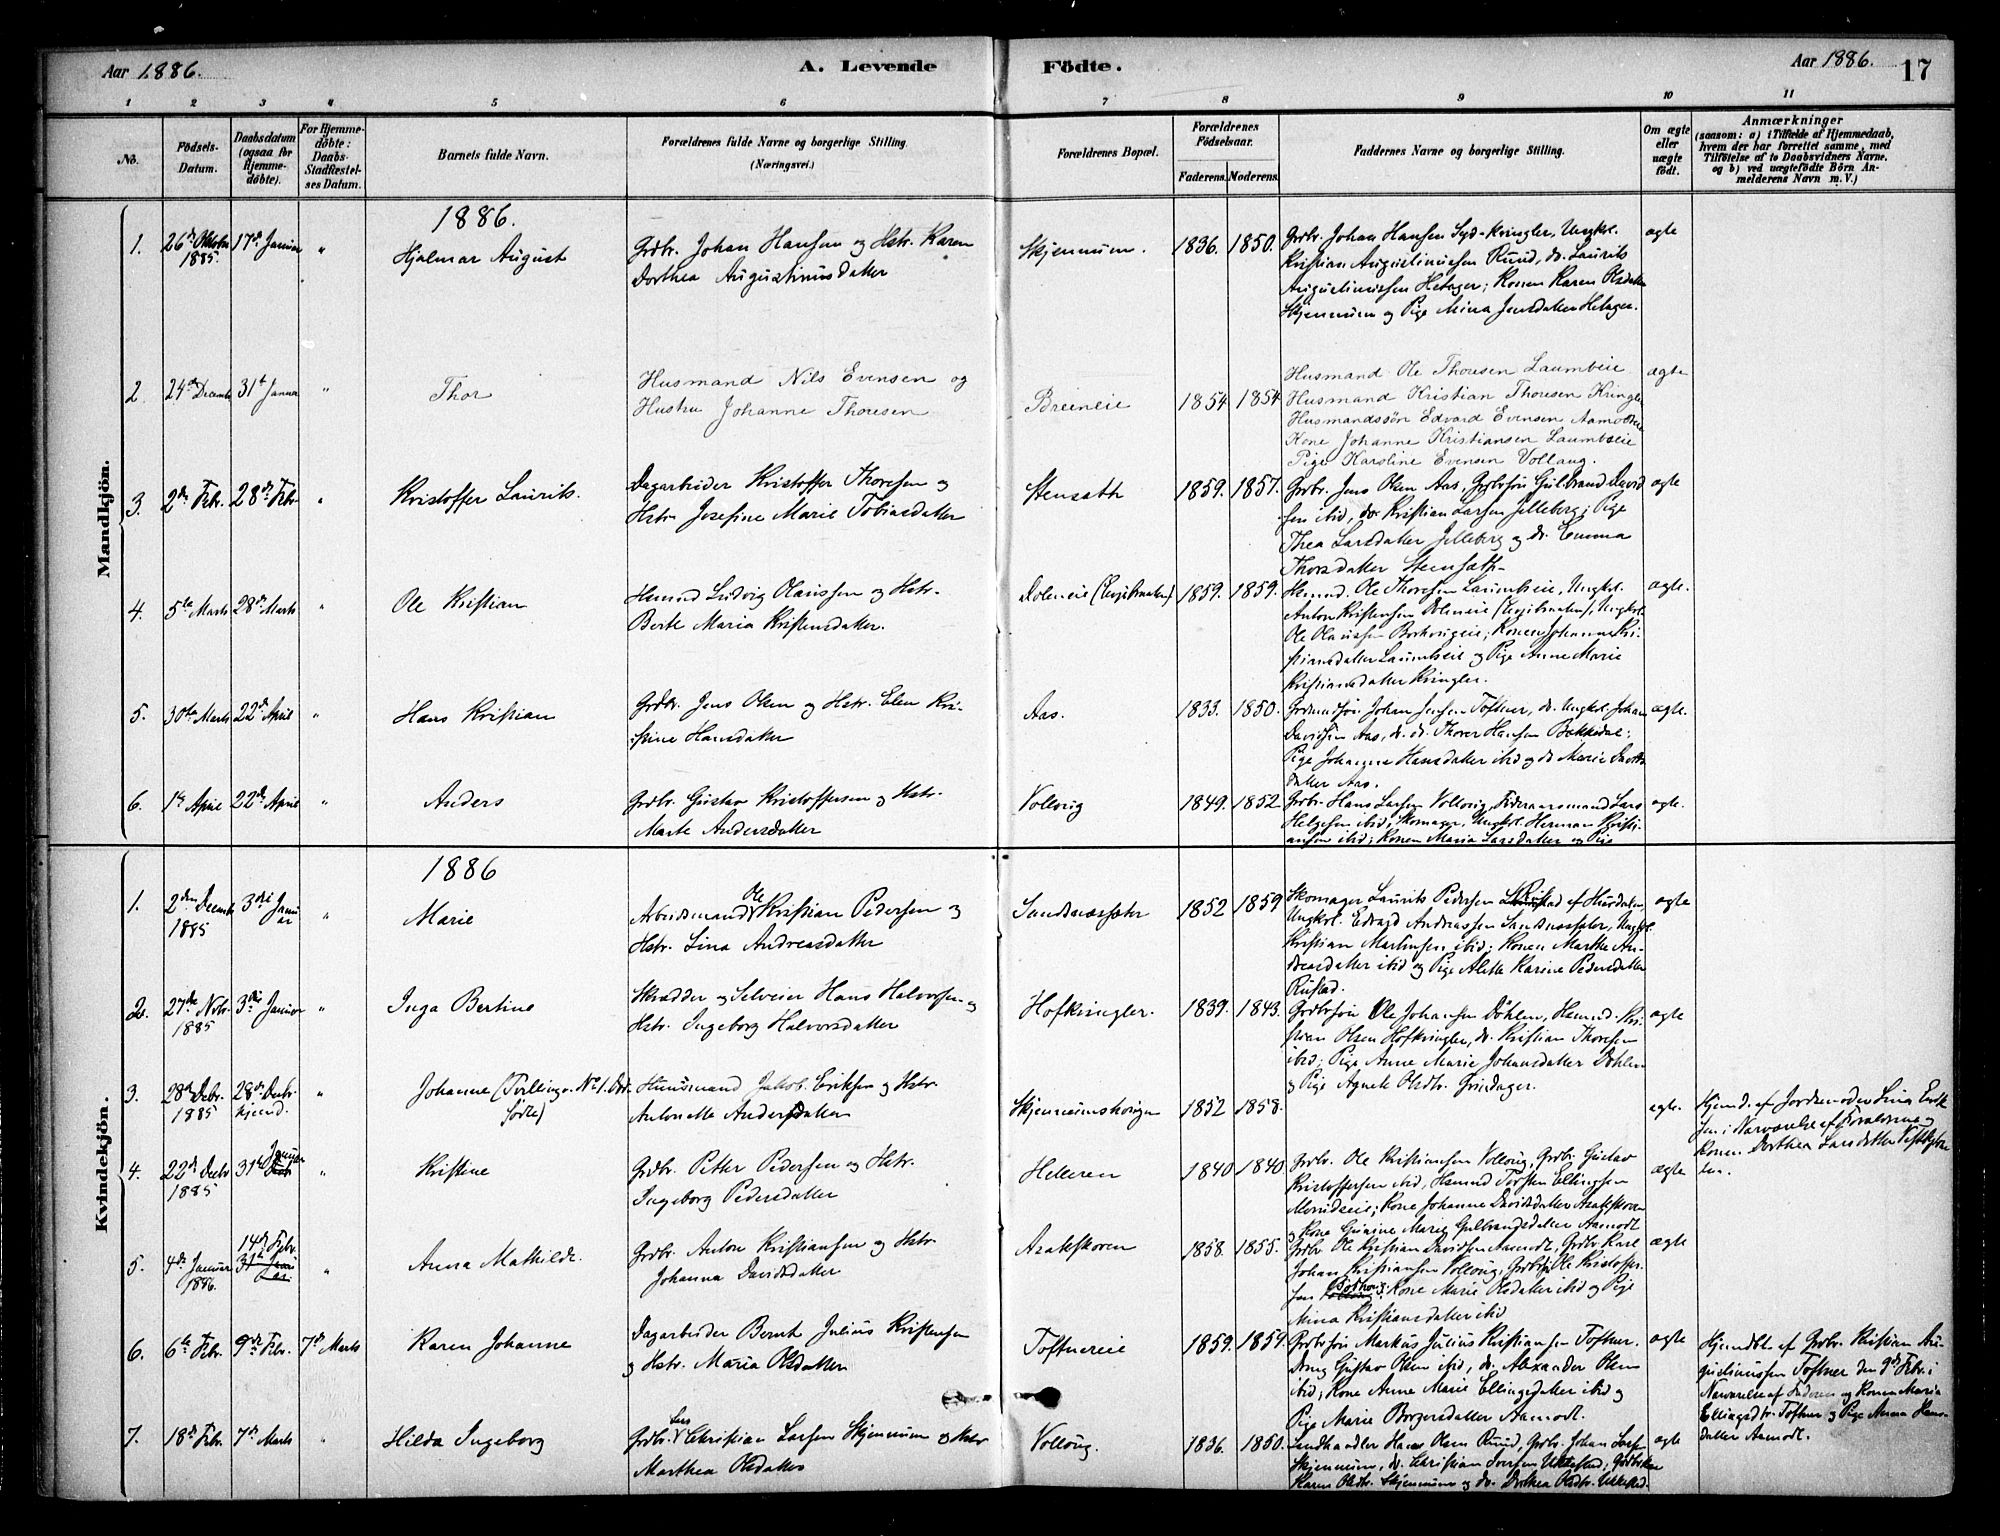 Aar 1886.
A. Levende Födte.
Aar 1886.
17
1 2 3 4 5 6 7 8 9 10 11
No.
Födsels-Datum.
Daabsdatum (ogsaa for Hjemme-döbte).
For Hjemme-döbte: Daabs-Stadfæstel-ses Datum.
Barnets fulde Navn.
Forældrenes fulde Navne og borgerlige Stilling.
(Næringsvei.)
Forældrenes Bopæl.
Forældrenes Födselsaar.
Faderens. Moderens.
Faddernes Navne og borgerlige Stilling.
Om ægte eller uægte födt.
Anmærkninger
(saasom: a) i Tilfælde af Hjemmedaab,
hvem der har forrettet samme, med
Tilföielse af to Daabsvidners Navne,
og b) ved uægtefödte Börn An-
melderens Navn m. V.)
Mandkjön.
1886.
1. 26de Oktober 1885. 17de Januar "
Hjalmar August
Grdbr. Johan Hansen og Hstr. Karen
Dorthea Augustinusdatter
Skjennum. 1836. 1850.
Grdbr. Johan Hansen Syd-Kringler, Ungkl.
Kristian Augustinussen Ruud, do. Laurits
Augustinussen Hetager; Konen Karen Olsdatter
Skjennum og Pige Mina Jensdatter Hetager.
ægte
2 24de Decemb 31te Januar "
Thor
Husmand Nils Evensen og
Hustru Johanne Thoresen
Breeneie 1854. 1854
Husmand Ole Thoresen Laumbeie
Husmand Kristian Thoresen Kringler
Husmandssön Edvard Evensen Aamodteie
Kone Johanne Kristiansen Laumbseie
Pige Karoline Evensen Vollaug.
ægte
3. 2den Febr. 28de Febr. "
Kristoffer Laurits.
Dagarbeider Kristoffer Thoresen og
Hstr. Josefine Marie Tobiasdatter
Stensæth 1859. 1857.
Grdbr. Jens Olsen Aas, Grdbrsön Gulbrand David
sen ibid, do. Kristian Larsen Jelleberg; Pige
Thea Larsdatter Jelleberg og do. Emma
Thorsdatter Stensæth.
ægte
4. 5te Marts 28de Marts "
Ole Kristian
Husmd Ludvig Olaussen og Hstr.
Berte Maria Kristensdatter.
1859. 1859.
Husmd. Ole Thoresen Laumbeie, Ungkl.
Anton Kristensen
Ole Olaussen Konen Johanne Kri-
stiansdatter Laumbseie og Pige Anne Marie
Kristiansdatter Kringler.
ægte.
5. 30te Marts 22de April "
Hans Kristian
Grdbr. Jens Olsen og Hstr. Elen Kri-
stine Hansdatter
Aas. 1833. 1850.
Johan Jensen Toftner, do. Ungkl. Johan
Davidsen Aas, do. do. Thorer Hansen Bakkedal;
Pige Johanne Hansdatter ibid og do. Marie Davids
datter Aas.
ægte.
6. 1ste April 22de April "
Anders
Grdbr. Gustav Kristoffersen og Hstr.
Marte Andersdatter
Vollaug 1849. 1852
Grdbr. Hans Larsen Vollaug, Föderaadsmand Lars
Helgesen ibid; Skomager, Ungkl. Herman Kristi-
ansen ibid; Konen Maria Larsdatter og Pige
ægte.
Kvindekjön.
1886
1. 2den Decemb 1885 3die Januar "
Marie
Arbeidsmand Ole Kristian Pedersen og
Hstr. Lina Andreasdatter
Sandnæssæter 1852 1859
Skomager Laurits Pedersen Rustad af Hurdalen,
Ungkl. Edvard Andreassen Sandnæssæter, Ungkl.
Kristian Martinsen ibid; Konen Marthe An-
dreasdatter ibid og Pige Alette Karine Pedersdatter
Rustad.
ægte
2. 27de Novbr. 1885 3die Januar "
Inga Bertine
Skrædder og Selveier Hans Halvorsen og
Hstr. Ingeborg Halvorsdatter
Hofkringler. 1839. 1843.
Grdbrsön Ole Johansen Döhlen, Husmd. Kri-
stian Olsen Hofkringler, do. Kristian Thoresen
ibid; Pige Anne Marie Johansdatter Döhlen
og Pige Agnete Olsdtr. Grindager.
ægte
3. 28de Debr. 1885 28de Debr. hjemd. "
Johanne (Tvilling. No 1. Död-
födte)
Huusmand Jakob Eriksen og Hstr.
Antonette Andersdatter
Skjennumshaugen 1852 1858.
ægte.
Hjemd. af Jordemoder Lina Erik
sen i Nærværelse af Forældrene og
Konen Dorthea Larsdatter
4. 22de Debr 1885 31te Januar "
Kristine
Grdbr. Petter Pedersen og Hstr.
Ingeborg Pedersdatter
Helleren 1840 1840
Grdbr. Ole Kristiansen Vollaug, Grdbr. Gustav
Kristoffersen ibid, Husmd Torsten Ellingsen
Kone Johanne Davidsdatter Asakskoven
og Kone Marie Gulbrandsdatter Aamodt
ægte
5. 4de Januar 1886. 14de Febr. "
Anna Mathilde.
Grdbr. Anton Kristiansen og Hstr.
Johanna Davidsdatter
Asakskoven 1858. 1855.
Grdbr Ole Kristian Davidsen Aamodt, Grdbr. Karl
Johan Kristiansen Vollaug, Grdbrsön Ole Kristoffer-
sen Kone Marie Olsdatter ibid og Pige
Mina Kristiansdatter ibid
ægte
6. 6te Febr. 9de Febr. 7de Marts
Karen Johanne
Dagarbeider Bernt Julius Kristensen
og Hstr. Maria Olsdatter
Toftnereie 1859. 1859.
Grdbrsön Markus Julius Kristiansen Toftner.
Dreng Gustav Olsen ibid, do. Alexander Olsen
ibid; Kone Anne Marie Ellingsdatter ibid og
Pige Marie Borgersdatter Aamodt.
ægte
Hjemdbt. af Grdbr. Kristian Au-
gustinussen Toftner den 9de Febr. i
Nærværelse af Faderen og Konen Maria
Ellingsdtr. Toftner og Pige Anna Hans-
datter Aamodt.
7. 18de Febr. 7de Marts "
Hilda Ingeborg
Grdbr. Lars Christian Larsen Skjennum og Hstr
Marthea Olsdatter
Vollaug. 1836. 1850.
Landhandler Hans Olsen Ruud, Grdbr. Johan Larsen
Skjennum, do. Christian Iversen Ukkestad; Grdbrske
Karen Olsdtr. Skjennum og do. Dorthea Olsdtr. Ukkestad.
ægte